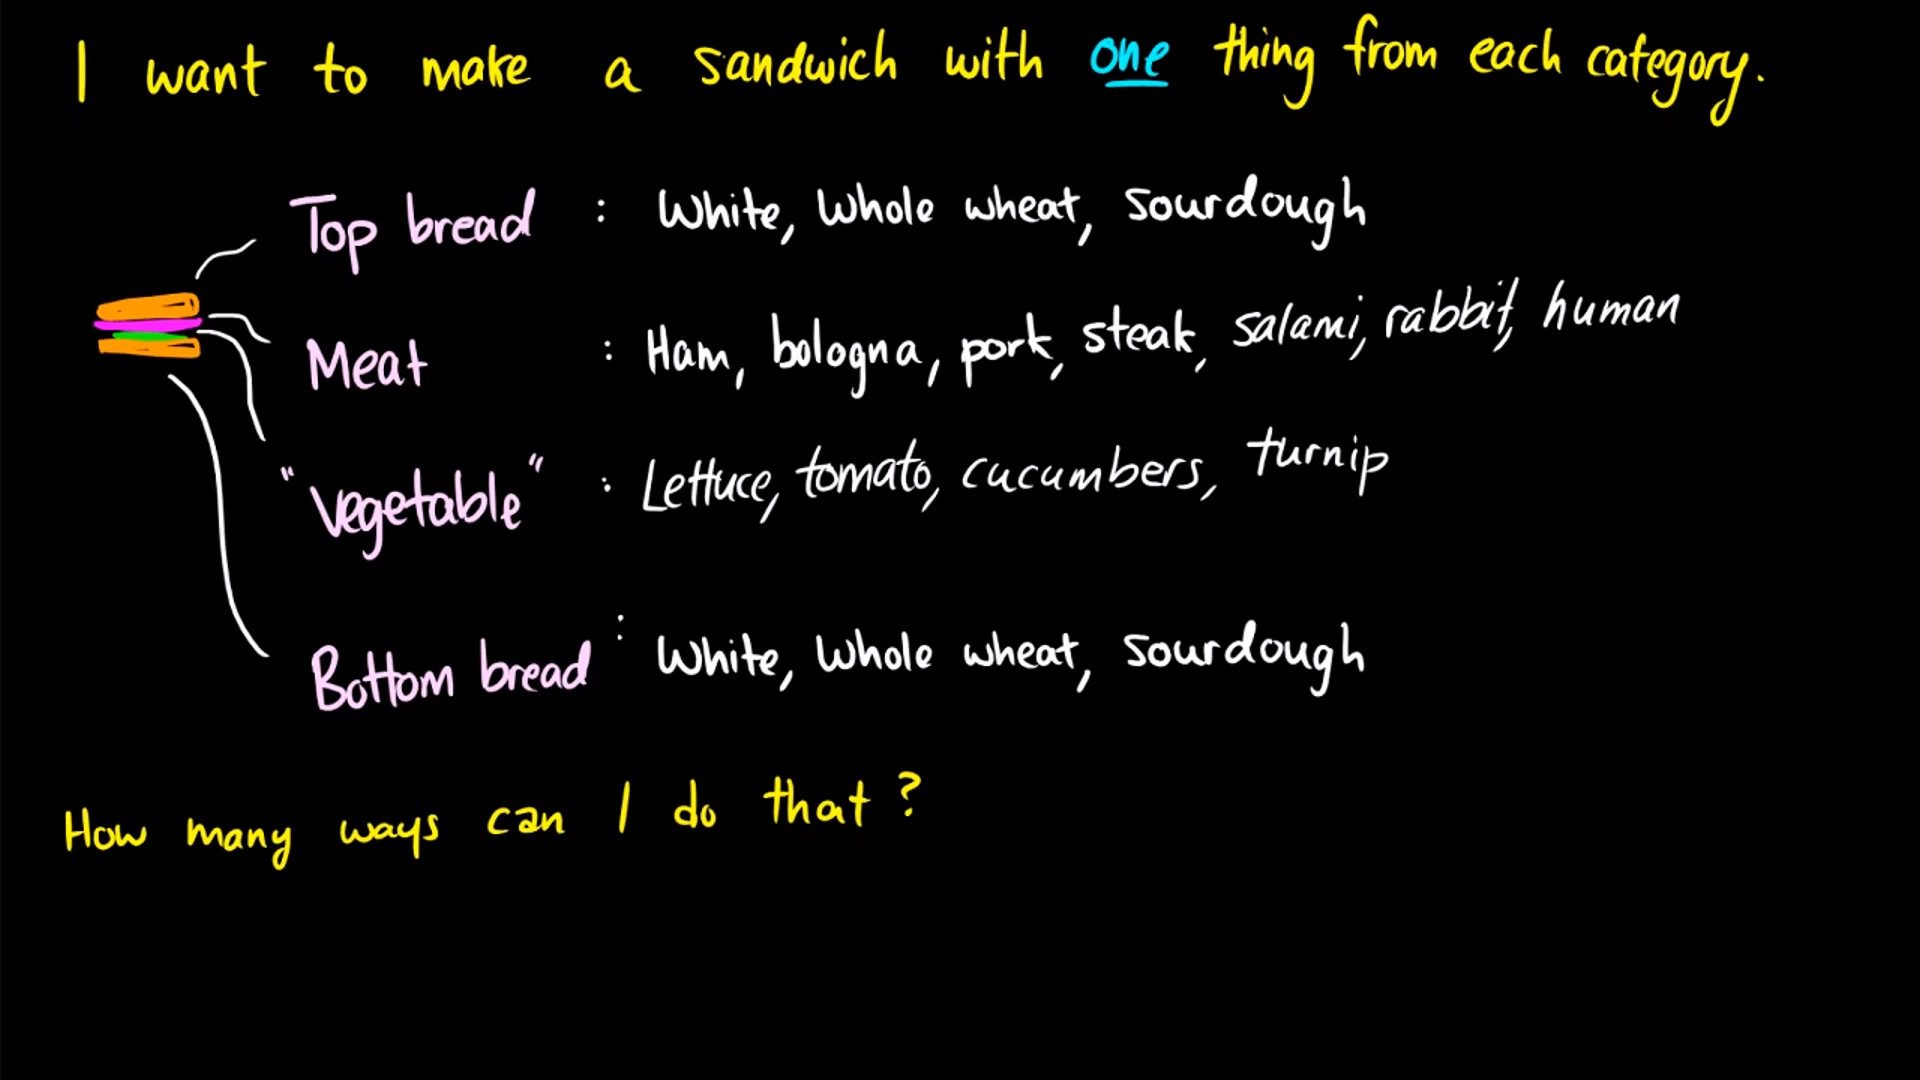 I want to make a sandwich with one thing from each category.
Top bread : White, Whole wheat, Sourdough
Meat : Ham, bologna, pork, steak, salami, rabbit, human
"Vegetable" : Lettuce, tomato, cucumbers, turnip
Bottom bread : White, Whole wheat, Sourdough
How many ways can I do that?